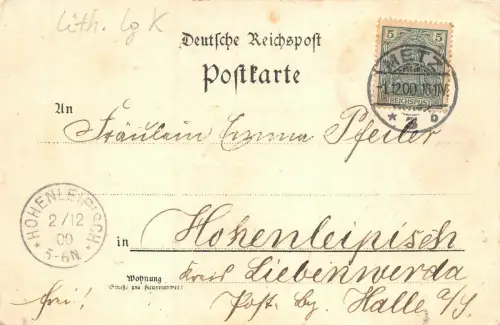 Lith. lg K
Deutsche Reichspost
Postkarte
5 5
REICHSPOST
METZ
1.12.00
* 3 b
An
Fräulein Emma Pfeiler
HOHENLEIPISCH
2/12
00
5-6N.
in Hohenleipisch
Wohnung
(Straße und Hausnummer)
Kreis Liebenwerda
frei!
Post bz. Halle a/S.